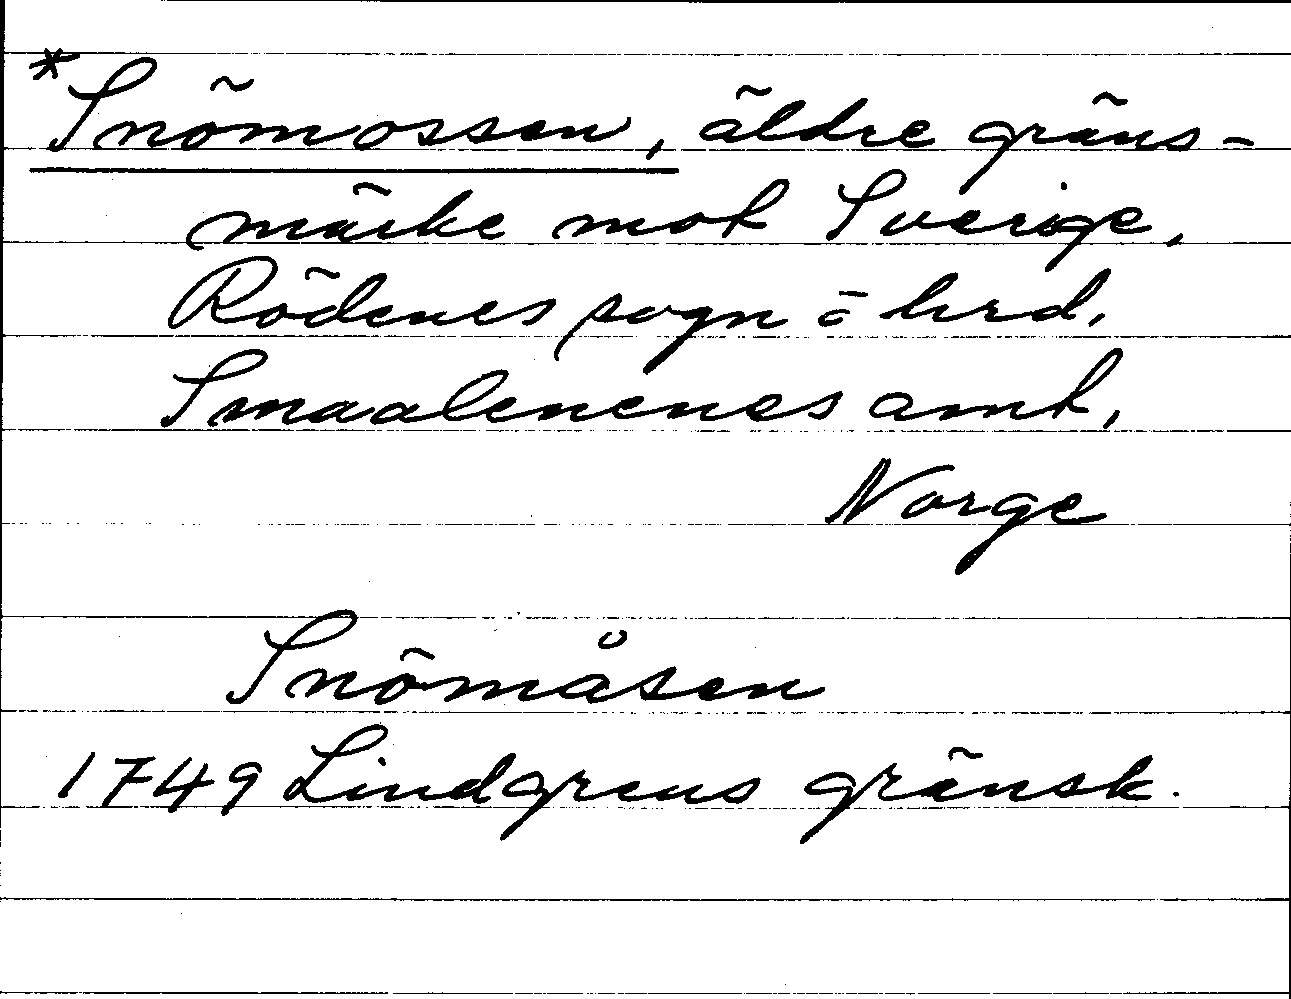 *Snömossen, äldre gräns-
märke mot Sverige,
Rödenes sogn o hrd,
Smaalenenes amt,
Norge
Snömåsen
1749 Lindgrens gränsk.